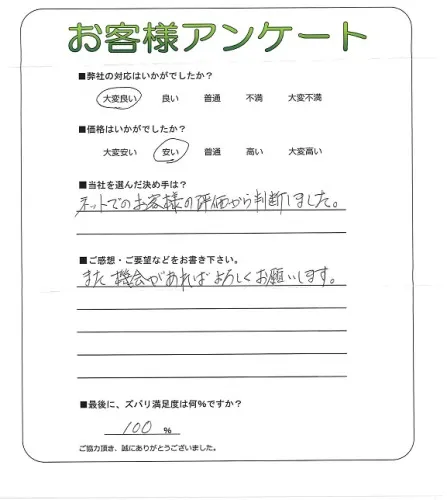 お客様アンケート
■弊社の対応はいかがでしたか?
大変良い 良い 普通 不満 大変不満
■価格はいかがでしたか?
大変安い 安い 普通 高い 大変高い
■当社を選んだ決め手は?
ネットでのお客様の評価から判断しました。
■ご感想・ご要望などをお書き下さい。
また機会があればよろしくお願いします。
■最後に、ズバリ満足度は何%ですか?
100 %
ご協力頂き、誠にありがとうございました。